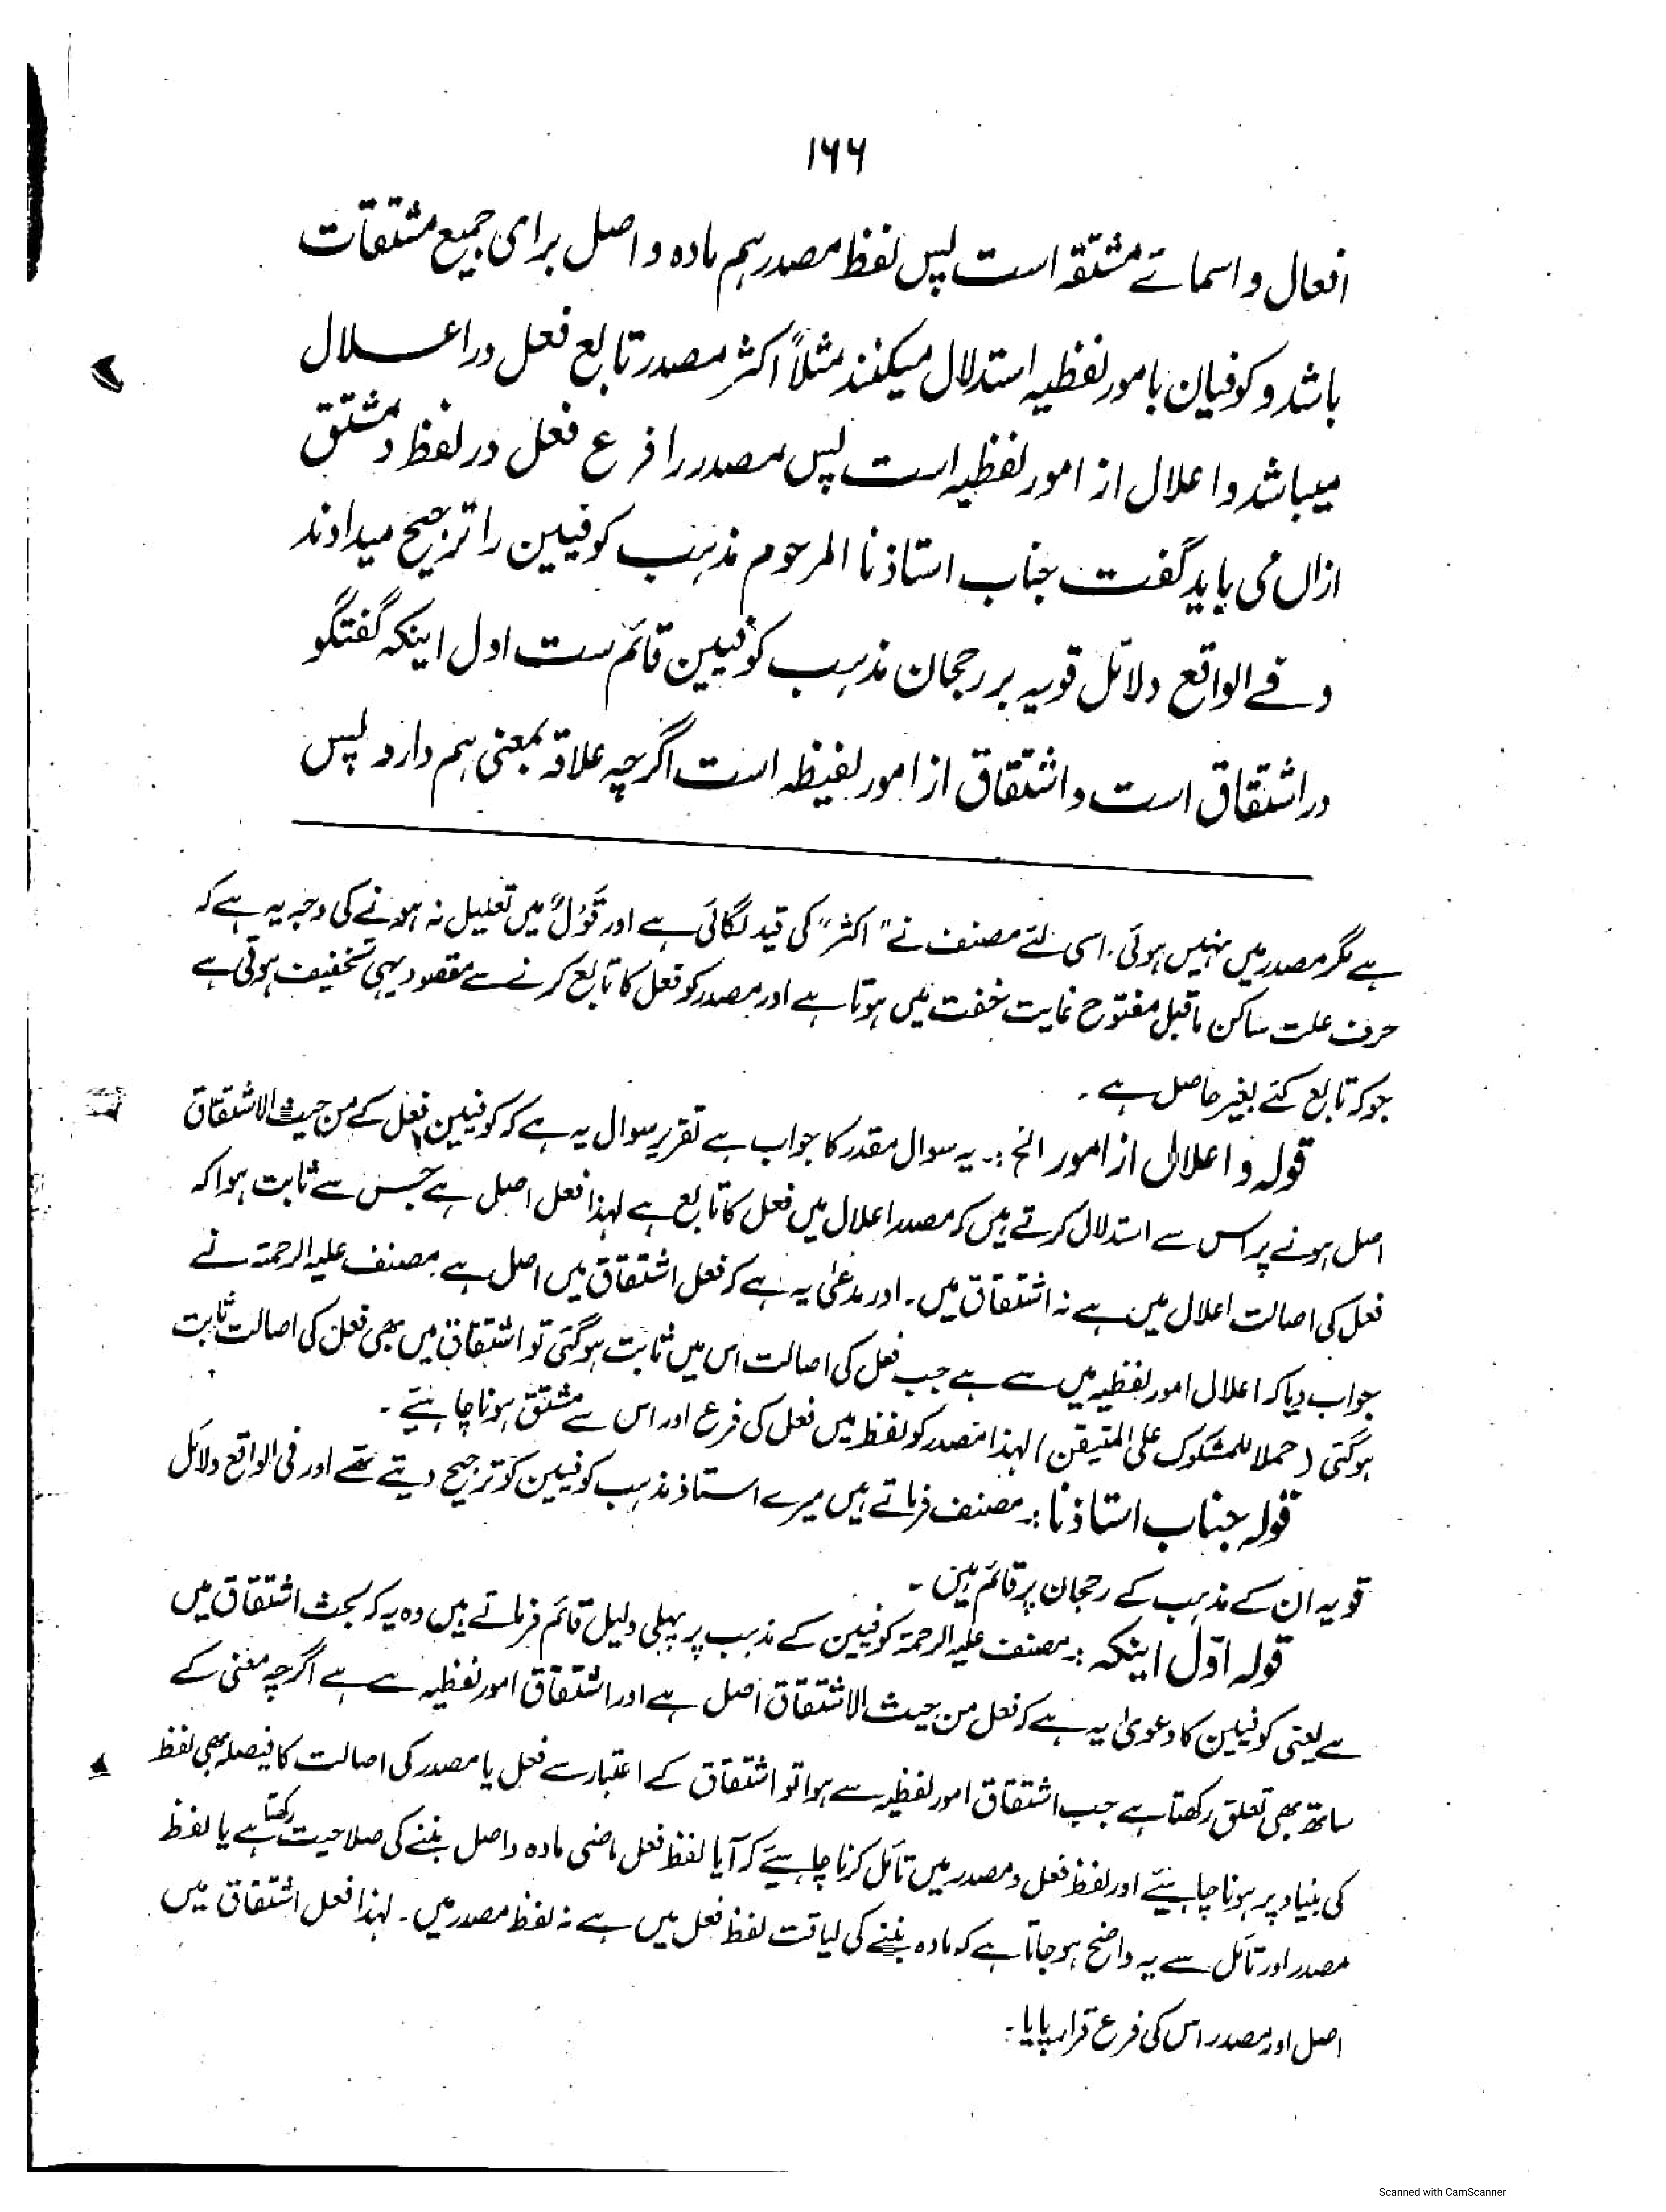 ۱۶۶
افعال و اسمائے مشتقہ است پس لفظ مصدر ہم مادہ و اصل برای جمیع مشتقات
باشد و کوفیان بامور لفظیہ استدلال میکنند مثلاً اکثر مصدر تابع فعل در اعلال
میباشد و اعلال از امور لفظیہ است پس مصدر را فرع فعل در لفظ و مشتق
ازاں می باید گفت جناب استاذنا المرحوم مذہب کوفیین را ترجیح میدادند
و فے الواقع دلائل قویہ بر رجحان مذہب کوفیین قائم ست اول اینکہ گفتگو
در اشتقاق است و اشتقاق از امور لفیظہ است اگرچہ علاقہ بمعنی ہم دارد پس
ہے مگر مصدر میں نہیں ہوئی۔ اسی لئے مصنف نے "اکثر" کی قید لگائی ہے اور قَوْلٌ میں تعلیل نہ ہونے کی وجہ یہ ہے کہ
حرف علت ساکن ماقبل مفتوح غایت خفت میں ہوتا ہے اور مصدر کو فعل کا تابع کرنے سے مقصود یہی تخفیف ہوتی ہے
جو کہ تابع کئے بغیر حاصل ہے۔
قولہ و اعلال از امور الخ :۔ یہ سوال مقدر کا جواب ہے تقریر سوال یہ ہے کہ کوفیین فعل کے من حیث الاشتقاق
اصل ہونے پر اس سے استدلال کرتے ہیں کہ مصدر اعلال میں فعل کا تابع ہے لہذا فعل اصل ہے جس سے ثابت ہوا کہ
فعل کی اصالت اعلال میں ہے نہ اشتقاق میں۔ اور مدعیٰ یہ ہے کہ فعل اشتقاق میں اصل ہے۔ مصنف علیہ الرحمۃ نے
جواب دیا کہ اعلال امور لفظیہ میں سے ہے جب فعل کی اصالت اس میں ثابت ہوگئی تو اشتقاق میں بھی فعل کی اصالت ثابت
ہوگئی (حملا للمشکوک علی المتیقن) لہذا مصدر کو لفظ میں فعل کی فرع اور اس سے مشتق ہونا چاہئیے۔
قولہ جناب استاذنا :۔ مصنف فرماتے ہیں میرے استاذ مذہب کوفیین کو ترجیح دیتے تھے اور فی الواقع دلائل
قویہ ان کے مذہب کے رجحان پر قائم ہیں۔
قولہ اوّل اینکہ :۔ مصنف علیہ الرحمۃ کوفیین کے مذہب پر پہلی دلیل قائم فرماتے ہیں وہ یہ کہ بحث اشتقاق میں
ہے یعنی کوفیین کا دعویٰ یہ ہے کہ فعل من حیث الاشتقاق اصل ہے اور اشتقاق امور لفظیہ سے ہے اگرچہ معنی کے
ساتھ بھی تعلق رکھتا ہے جب اشتقاق امور لفظیہ سے ہوا تو اشتقاق کے اعتبار سے فعل یا مصدر کی اصالت کا فیصلہ بھی لفظ
کی بنیاد پر ہونا چاہئیے اور لفظ فعل و مصدر میں تأمل کرنا چاہئیے کہ آیا لفظ فعل ماضی مادہ و اصل بننے کی صلاحیت رکھتا ہے یا لفظ
مصدر اور تأمل سے یہ واضح ہو جاتا ہے کہ مادہ بننے کی لیاقت لفظ فعل میں ہے نہ لفظ مصدر میں۔ لہذا فعل اشتقاق میں
اصل اور مصدر اس کی فرع قرار پایا۔
Scanned with CamScanner